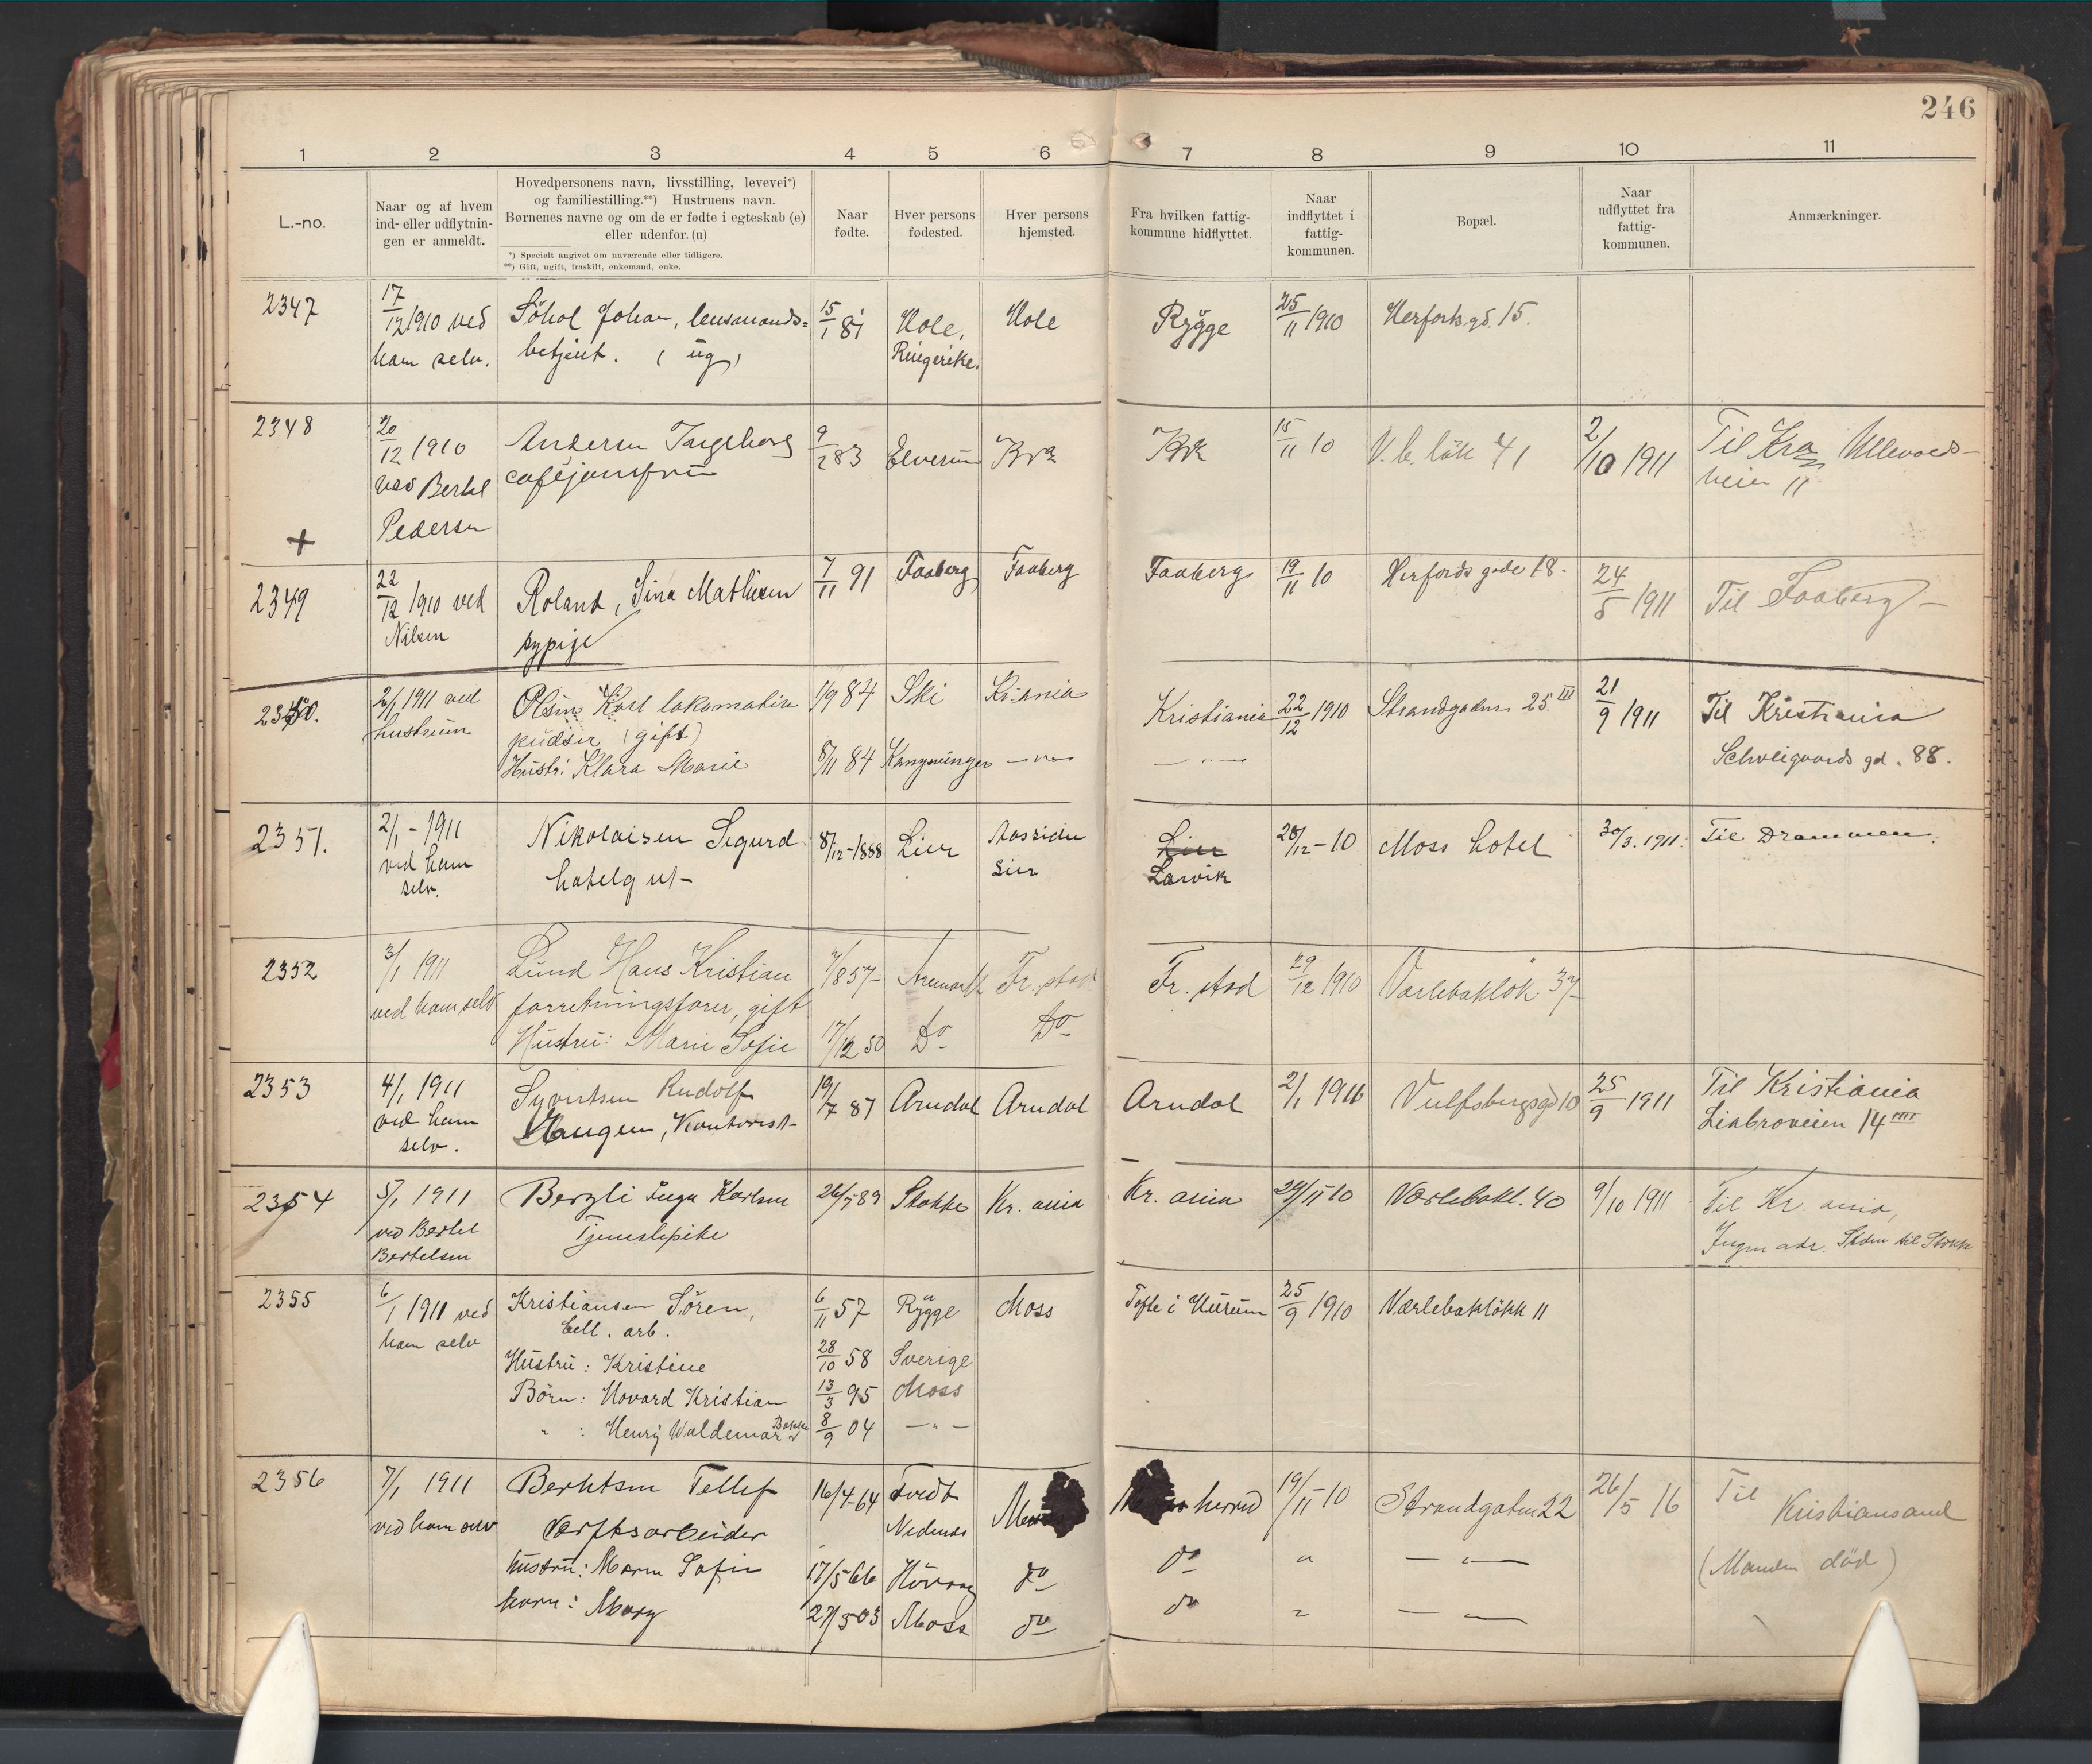 246
1 2 3 4 5 6 7 8 9 10 11
L.-no.
Naar og af hvem
ind- eller udflytnin-
gen er anmeldt.
Hovedpersonens navn, livsstilling, levevei*)
og familiestilling.**) Hustruens navn.
Børnenes navne og om de er fødte i egteskab (e)
eller udenfor. (u)
*) Specielt angivet om nuværende eller tidligere.
**) Gift, ugift, fraskilt, enkemand, enke.
Naar
fødte.
Hver persons
fødested.
Hver persons
hjemsted.
Fra hvilken fattig-
kommune hidflyttet.
Naar
indflyttet i
fattig-
kommunen.
Bopæl.
Naar
udflyttet fra
fattig-
kommunen.
Anmærkninger.
2347 17/12 1910 ved Søhol Johan, lensmands= 15/1 81 Hole, Hole Rygge 25/11 1910 Herfordsgd. 15.
ham selv. betjent. (ug) Ringerike.
2348 20/12 1910 Andersen Ingeborg 9/2 83 Elverum 15/11 10 V.b. løk 41 2/10 1911 Til Kra Ullevolds-
ved Bertel caféjomfru veien 11
Pedersen
+
2349 22/12 1910 ved Roland, Sina Mathisen 7/11 91 Faaberg Faaberg Faaberg 19/11 10 Herfords gade 18. 24/5 1911 Til Faaberg -
Nilsen sypige
2350. 2/1 1911 ved Olsen Karl lokomotiv 1/9 84 Ski Kr.ania Kristiania 22/12 1910 Strandgaden 25 III 21/9 1911 Til Kristiania
hustruen pudser (gift) Schweigaards gd. 88.
Hustr: Klara Marie 8/11 84 Kongsvinger — " — — " —
2351. 2/1 - 1911 Nikolaisen Sigurd 8/12 - 1888 Lier Lier 28/12 - 10 Moss hotel 30/3. 1911. Til Drammen.
ved ham hotelgut - Lier Larvik
selv.
2352 3/1 1911 Lund Hans Kristian 857 Aremark Fr. stad Fr. stad 29/12 1910 Varlebakløk. 37
ved ham selv forretningsfører, gift
Hustru: Marie Sofie 17/12 50 Do Do
2353 4/1 1911 Syvertsen Rudolf 19/7 87 Arendal Arendal Arendal 2/1 1911 Vulfsbergsgd 10 25/9 1911 Til Kristiania
ved ham Haugen, Kontorist- Liabroveien 14 III
selv.
2354 5/1 1911 Bergli Inga Karlsen 26/5 89 Stokke Kr. ania Kr. ania 29/11 10 Værlebakl. 40 9/10 1911 Til Kr. ania,
ved Bertel Tjenestepike Ingen adr. Siden til Stokke
Bertelsen
2355 6/1 1911 ved Kristiansen Søren, 6/11 57 Rygge Moss Tofte i Hurum 25/9 1910 Værlebakløkk 11
ham selv Cell. arb.
Hustru: Kristine 28/10 58 Sverige
Børn: Hovard Kristian 13/3 95 Moss
" : Henry Waldemar 8/9 04 — " —
2356 7/1 1911 Berntsen Tellef 16/4-64 Tvedt herred 19/11-10 Strandgaten 22 26/5 16 Til Kristiansand
ved ham selv Værftsarbeider Nedenes
hustru: Maren Sofie 17/5 66 Høvaag do do " — " — (Manden død)
barn: Mary 27/5 03 Moss do do " — " —